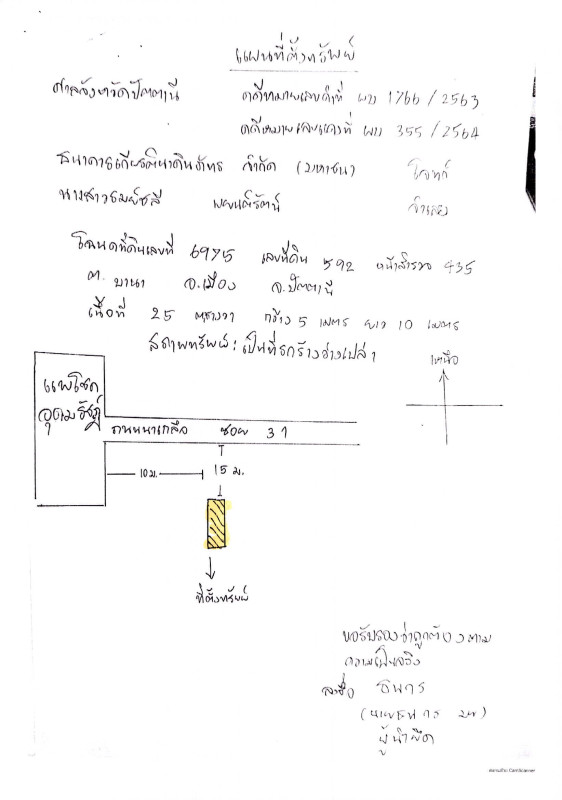 แผนที่ตั้งทรัพย์
ศาลจังหวัดปัตตานี คดีหมายเลขดำที่ ผบ 1766 / 2563
คดีหมายเลขแดงที่ ผบ 355 / 2564
ธนาคารเกียรตินาคินภัทร จำกัด (มหาชน) โจทก์
นางสาวรมย์ชลี จำเลย
โฉนดที่ดินเลขที่ 6975 เลขที่ดิน 592 หน้าสำรวจ 435
ต. บานา อ.เมือง จ.ปัตตานี
เนื้อที่ 25 ตารางวา กว้าง 5 เมตร ยาว 10 เมตร
สภาพทรัพย์ : เป็นที่รกร้างว่างเปล่า
เหนือ
แพโชค
อุดมรัชฎ์
ถนนนาเกลือ ซอย 31
10 ม. 15 ม.
ที่ตั้งทรัพย์
ขอรับรองว่าถูกต้องตาม
ความเป็นจริง
ลงชื่อ ธนากร
(นายธนากร
ผู้นำยึด
สแกนด้วย CamScanner